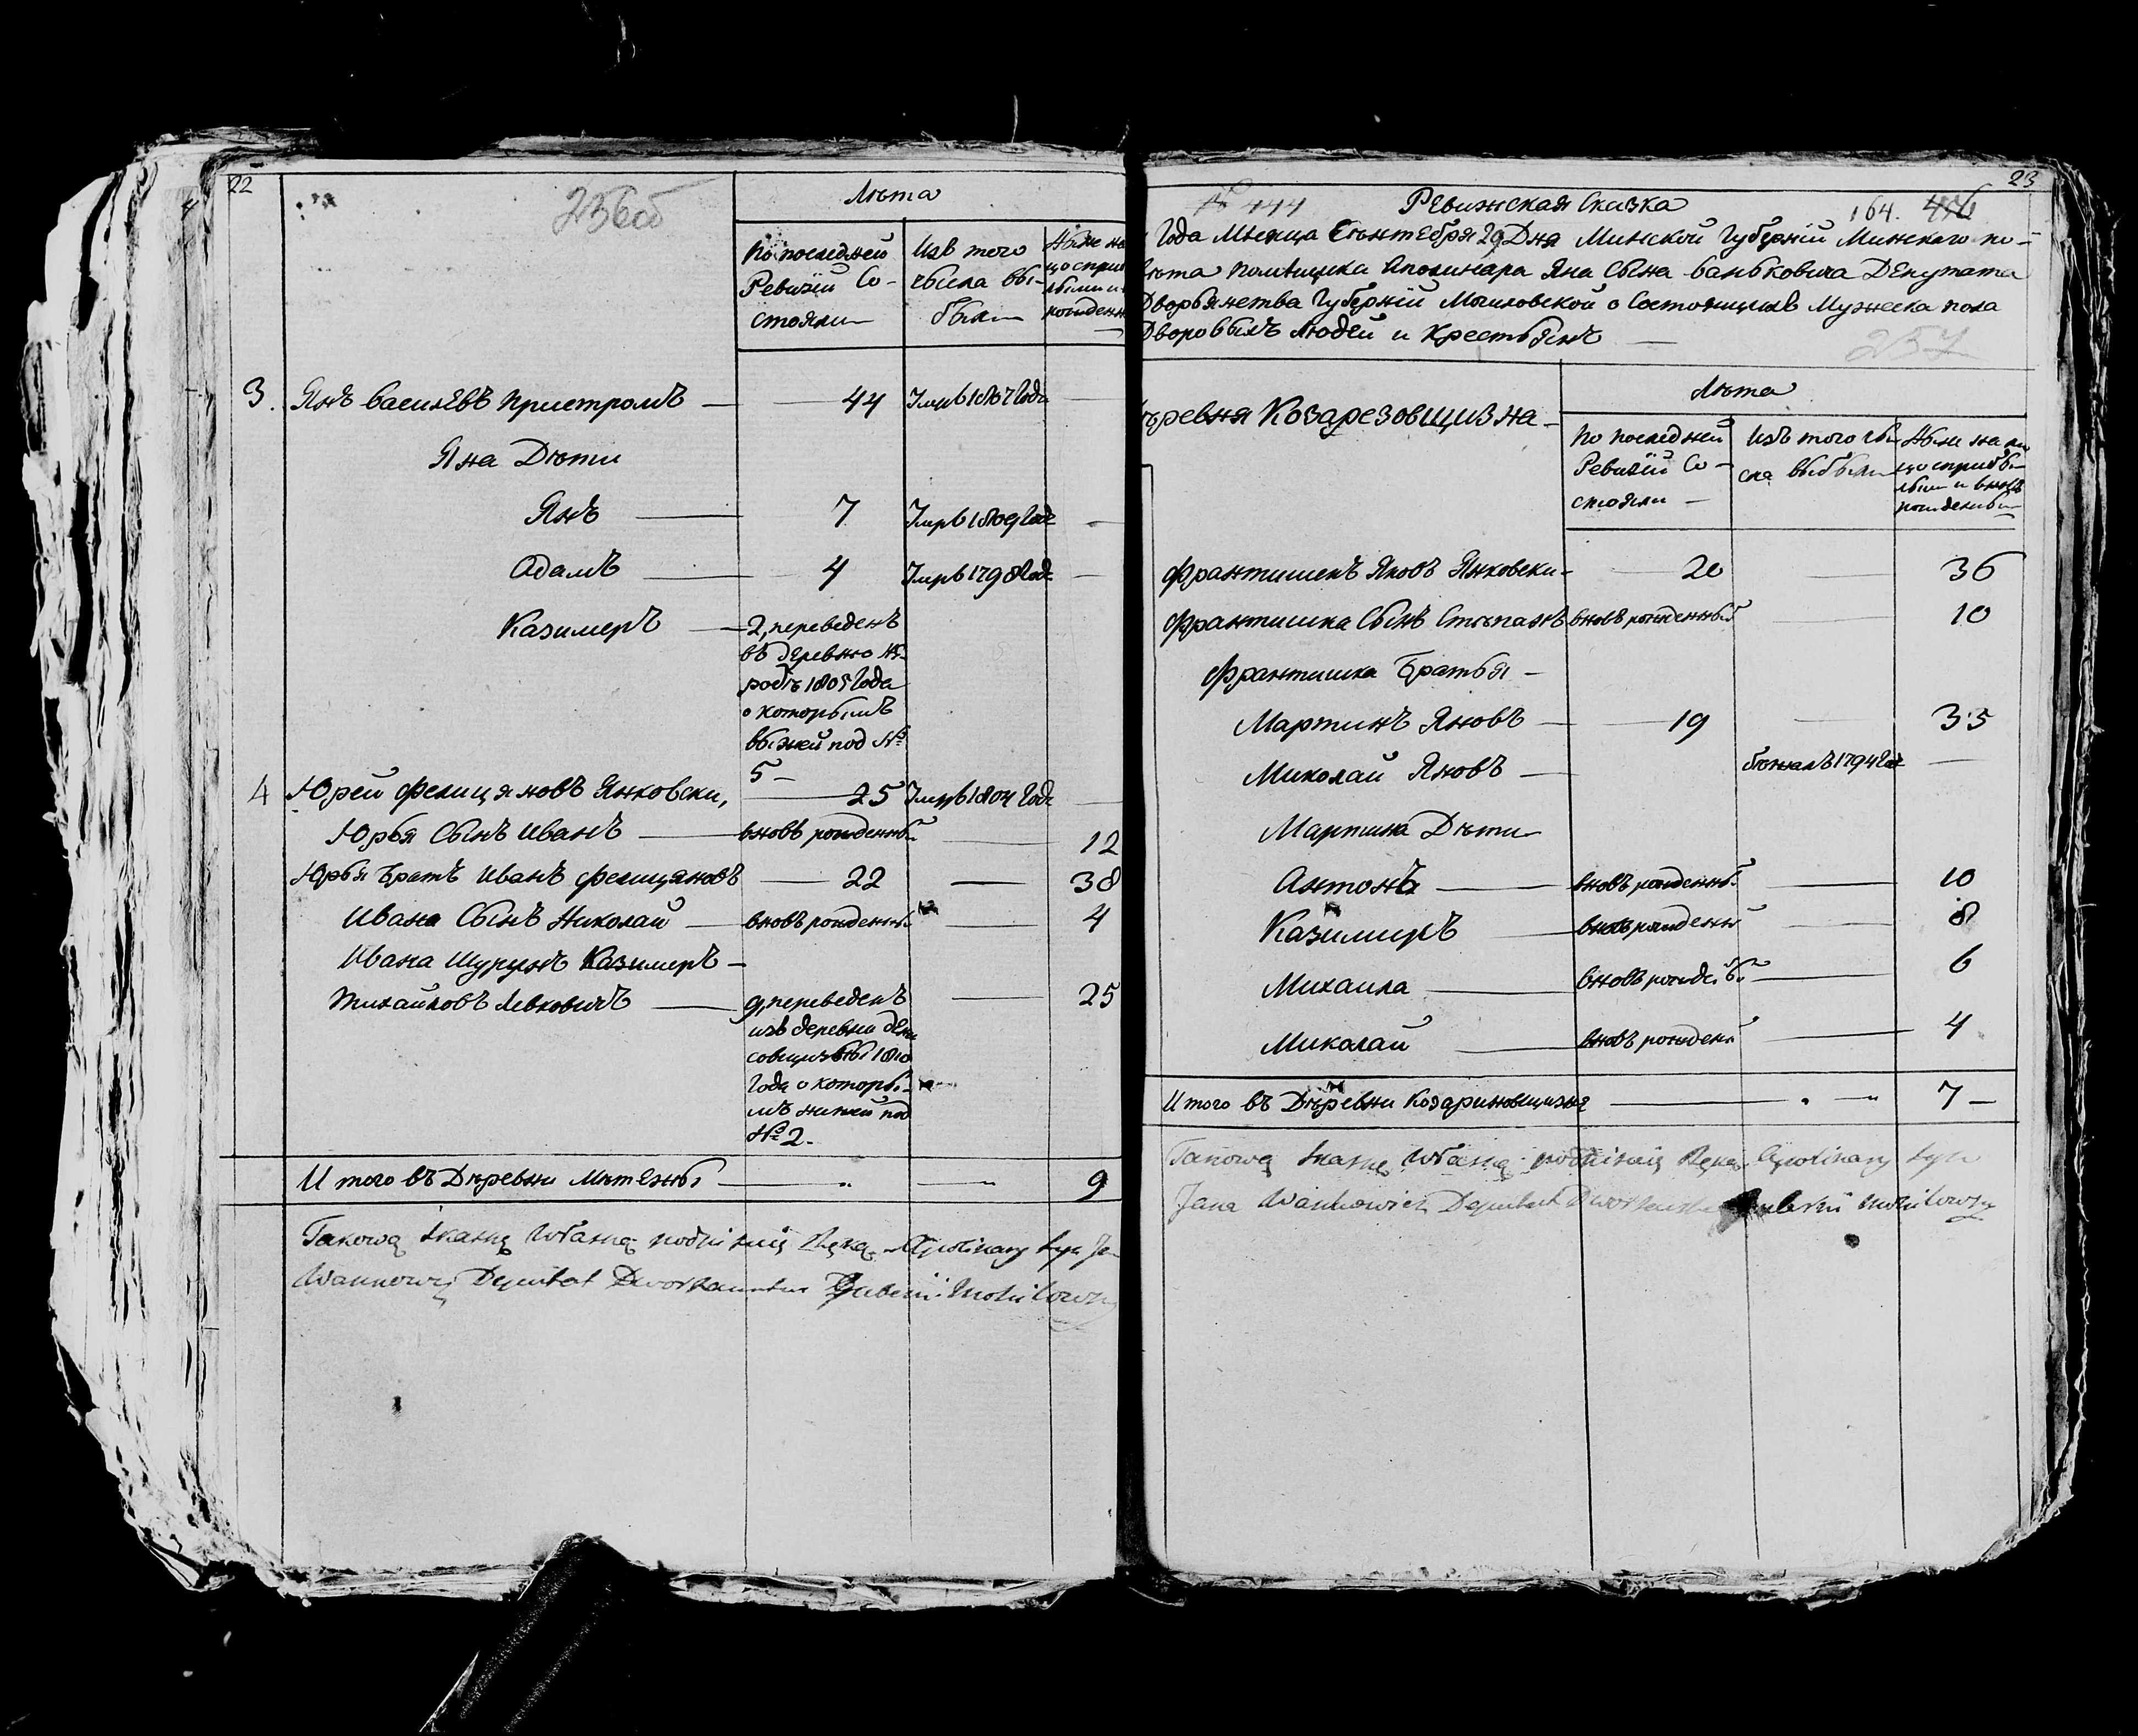 22
236об
Лѣта
По последней
Ревизіи Со-
стояли
Изъ того
числа вы-
было
Ныне на
3. Янъ Васильевъ Пристромъ — 44 Умръ 1807 Года
Яна Дѣти
Янъ — 7 Умръ 1809 Года
Адамъ — 4 Умръ 1798 Года
Казимеръ — 2, переведенъ
въ деревню
1805 Года
о которымъ
выжей под №
5 —
4 Юрей Фелицяновъ Янковски, — 25 Умръ 1804 Года
Юрья Сынъ Иванъ — вновь рожденный — 12
Юрья Братъ Иванъ Фелицяновъ — 22 — 38
Ивана Сынъ Николай — вновь рожденны — 4
Ивана Шурунъ Казимеръ —
Михайловъ Левковичъ — 9, переведенъ — 25
изъ деревни
1810
Года о которы-
мъ нижей под
№ 2.
И того въ Дѣревни Мѣтежы — 9
Takową skaskę własną podpisuię Ręką Apolinary syn
Wankowicz Deputat Dworzanstwa Gubernii Mohilowsk
23
№ 444
Ревижская Сказка
164.
Года Мѣсяца Сентебря 29 Дня Минской Губерніи Минскаго по-
вѣта Помѣщика Аполинара Яна Сына Ваньковича Депутата
Дворьянства Губерніи Могиловской о Состоящихъ Мужеска пола
Дворовыхъ Людей и Крестьянъ —
257
ѣревня Козарезовщизна —
Лѣта
По последней
Ревизіи Со-
стояли —
Изъ того чи-
сла выбыли
Ныне на ли
цо сприбы-
лыми и вновь
рожденными
Франтишекъ Яновъ Янковски — 20 — 36
Франтишка Сынъ Стѣпанъ вновь рожденный — 10
Франтишка Братья —
Мартинъ Яновъ — 19 — 35
Миколай Яновъ — бежалъ 1794 Года —
Мартина Дѣти
Антонъ — вновь рожденны — 10
Казимиръ — вновь рожденны — 8
Михаила — вновь рожде — 6
Миколай — вновь рожден — 4
И того въ Дѣревни Козариновщизне — 7 —
Takową skaskę własną podpisuię Ręką Apolinary syn
Jana Wankowicz Deputat Dworzanstwa Gubernii Mohilowsk